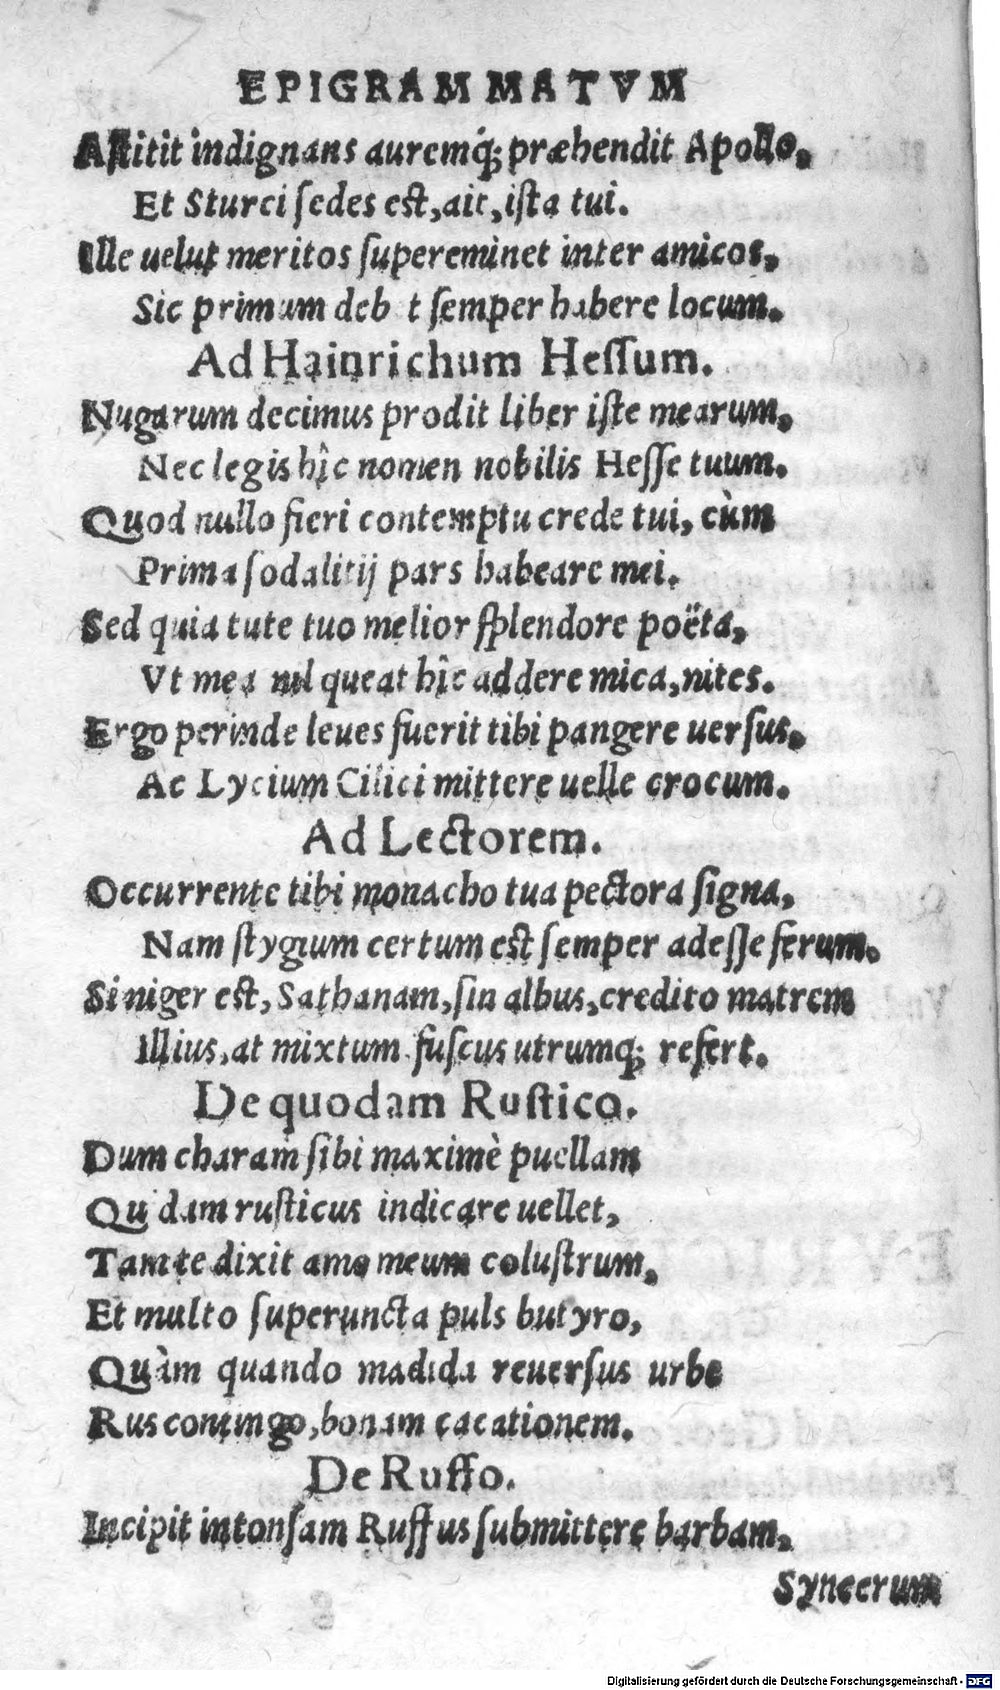 EPIGRAMMATVM
Aſtitit indignans auremq́; præhendit Apollo,
Et Sturci ſedes eſt, ait, iſta tui.
Ille uelut meritos ſupereminet inter amicos,
Sic primum deb t ſemper habere locum.
Ad Hainrichum Heſſum.
Nugarum decimus prodit liber iſte mearum,
Nec legis hîc nomen nobilis Heſſe tuum.
Quod nullo fieri contemptu crede tui, cùm
Prima ſodalitij pars habeare mei.
Sed quia tute tuo melior ſplendore poëta,
Vt mea nil queat hîc addere mica, nites.
Ergo perinde leues fuerit tibi pangere uerſus,
Ac Lycium Cilici mittere uelle crocum.
Ad Lectorem.
Occurrente tibi monacho tua pectora ſigna,
Nam ſtygium certum eſt ſemper adeſſe ferum.
Si niger eſt, Sathanam, ſin albus, credito matrem
Illius, at mixtum fuſcus utrumq; refert.
De quodam Ruſtico.
Dum charam ſibi maximè puellam
Qu dam ruſticus indicare uellet,
Tam te dixit amo meum coluſtrum,
Et multo ſuperuncta puls butyro,
Quàm quando madida reuerſus urbe
Rus contingo, bonam cacationem.
De Ruffo.
Incipit intonſam Ruffus ſubmittere barbam,
Syncerum
Digitalisierung gefördert durch die Deutsche Forschungsgemeinschaft - DFG